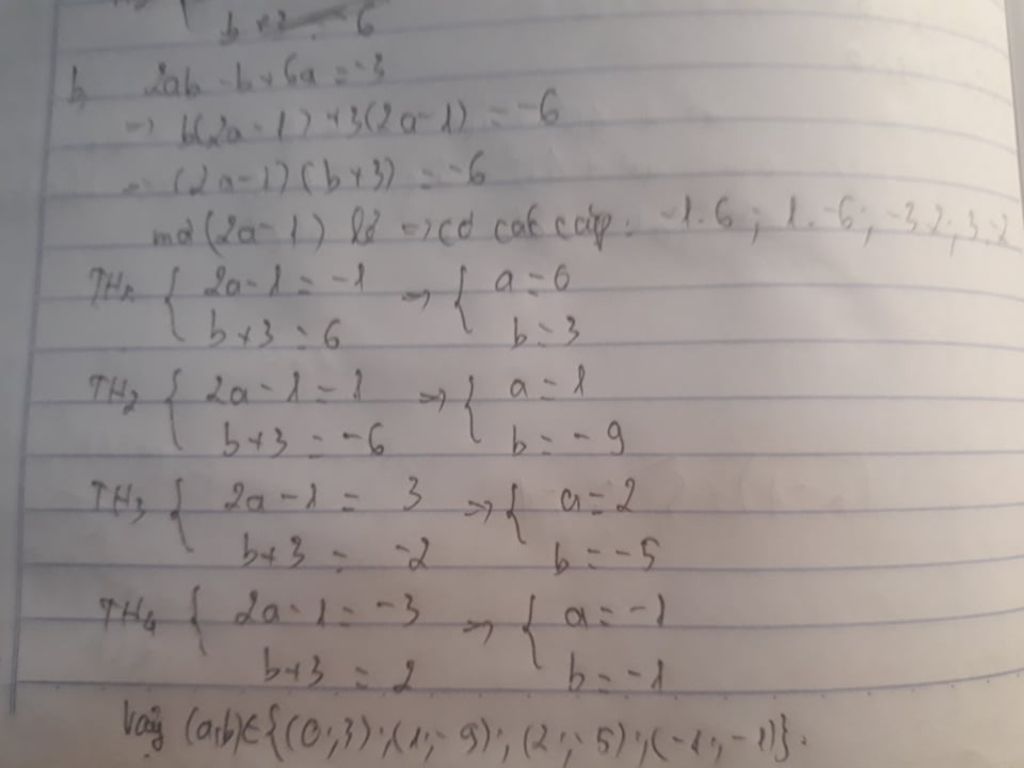 b+3 = 6
b, 2ab - b + 6a = -3
=> b(2a - 1) + 3(2a - 1) = -6
=> (2a - 1)(b + 3) = -6
mà (2a - 1) lẻ => có các cặp: -1.6; 1.-6; -3.2; 3.-2
TH1 { 2a - 1 = -1 => { a = 0
b + 3 = 6 b = 3
TH2 { 2a - 1 = 1 => { a = 1
b + 3 = -6 b = -9
TH3 { 2a - 1 = 3 => { a = 2
b + 3 = -2 b = -5
TH4 { 2a - 1 = -3 => { a = -1
b + 3 = 2 b = -1
Vậy (a;b) ∈ {(0;3);(1;-9);(2;-5);(-1;-1)}.